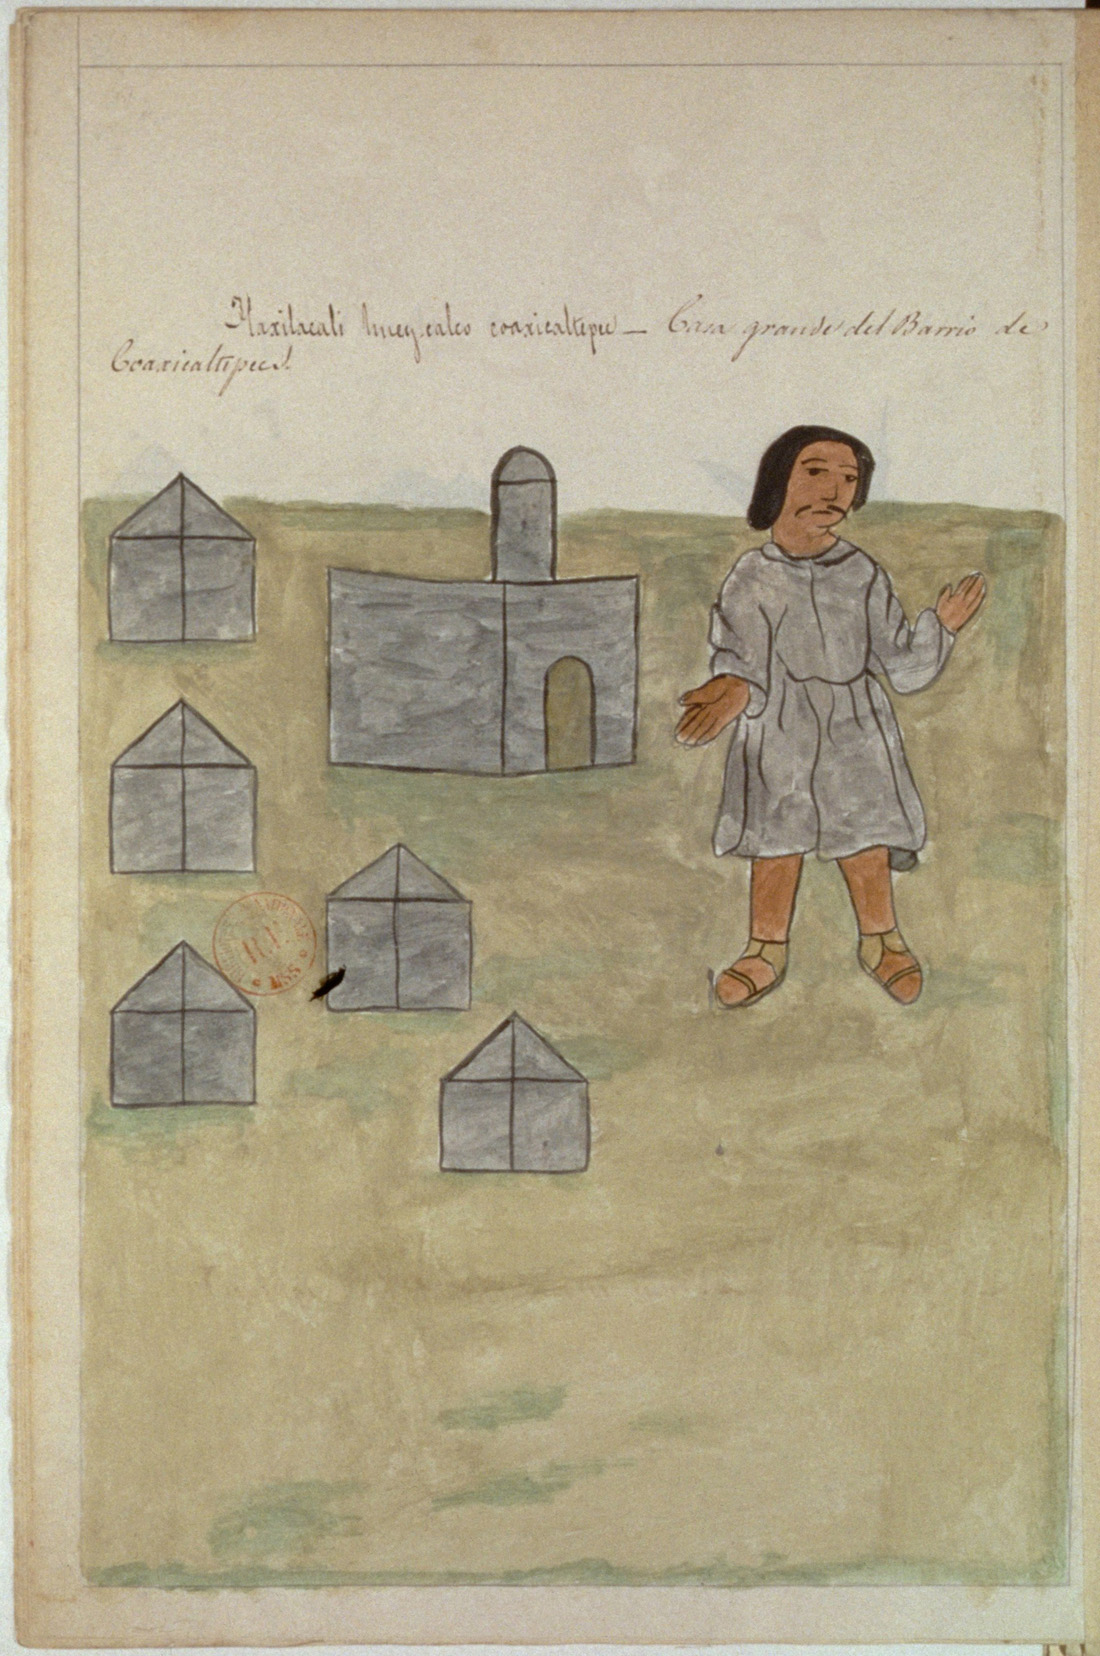 Tlaxilacali huey calco coaxicaltepec — Casa grande del Barrio de
Coaxicaltepec.
MSS